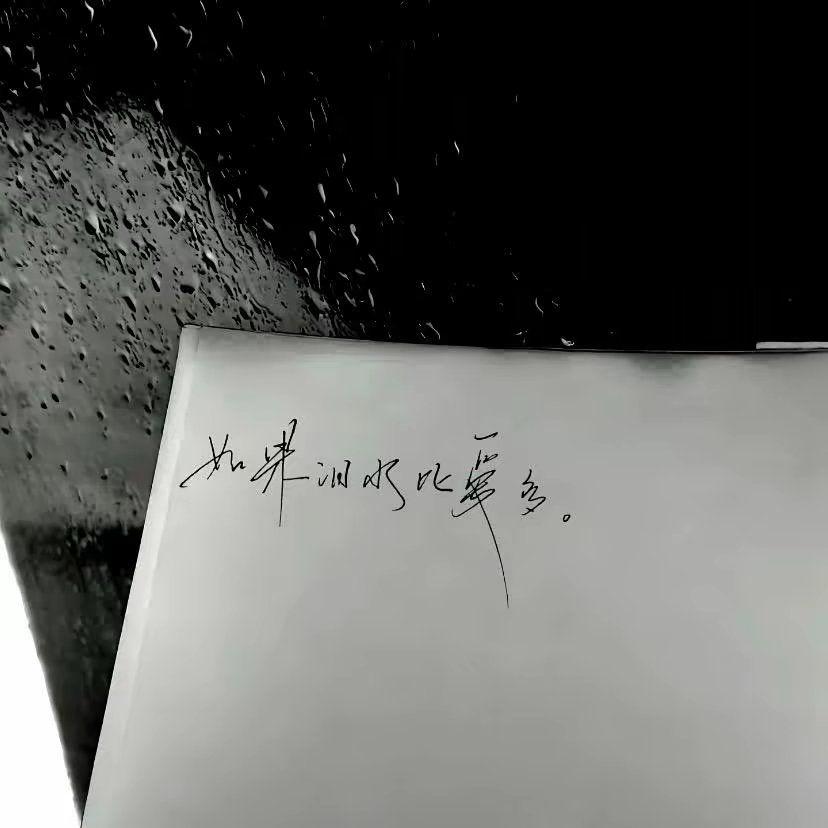 如果泪水比愛多。